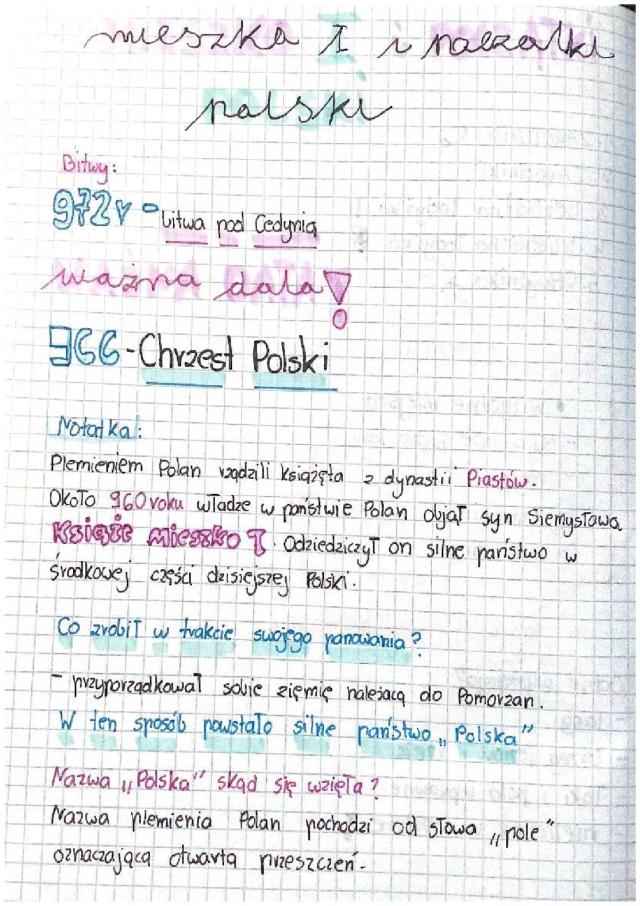 mieszka I i początki
polski
Bitwy:
972r - bitwa pod Cedynią
ważna data!
966 - Chrzest Polski
Notatka:
Plemieniem Polan rządzili książęta z dynastii Piastów.
Około 960 roku władze w państwie Polan objął syn Siemysłowa
Książe mieszko I. Odziedziczył on silne państwo w
środkowej części dzisiejszej Polski.
Co zrobił w trakcie swojego panowania?
- przyporządkował sobie ziemię należącą do Pomorzan.
W ten sposób powstało silne państwo „Polska"
Nazwa „Polska" skąd się wzięła?
Nazwa plemienia Polan pochodzi od słowa „pole"
oznaczającą otwartą przeszczeń.